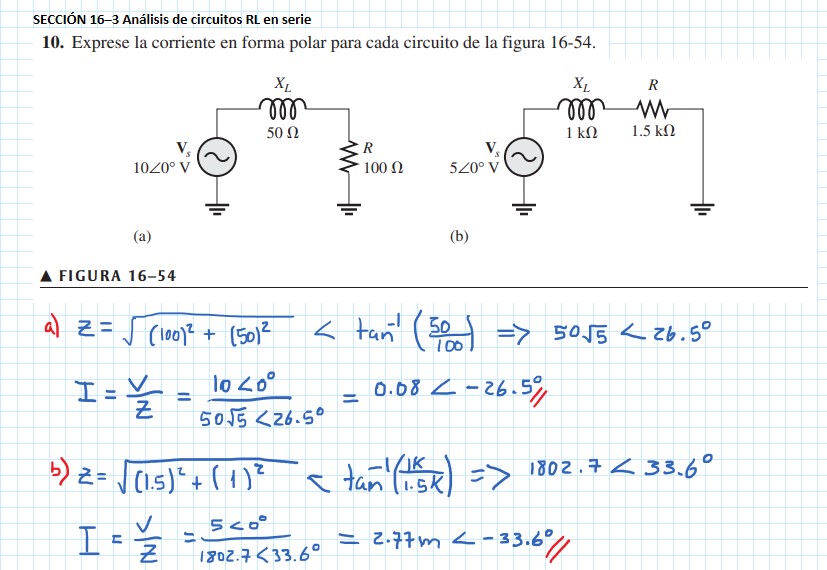 SECCIÓN 16–3 Análisis de circuitos RL en serie
10. Exprese la corriente en forma polar para cada circuito de la figura 16-54.
X_L
50 Ω
V_s
10∠0° V
R
100 Ω
(a)
X_L R
1 kΩ 1.5 kΩ
V_s
5∠0° V
(b)
▲ FIGURA 16–54
a) Z = √((100)² + (50)²) ∠ tan⁻¹(50/100) ⇒ 50√5 ∠ 26.5°
I = V/Z = 10∠0° / 50√5 ∠26.5° = 0.08 ∠ -26.5° //
b) Z = √((1.5)² + (1)²) ∠ tan⁻¹(1K/1.5K) ⇒ 1802.7 ∠ 33.6°
I = V/Z = 5∠0° / 1802.7∠33.6° = 2.77m ∠ -33.6° //